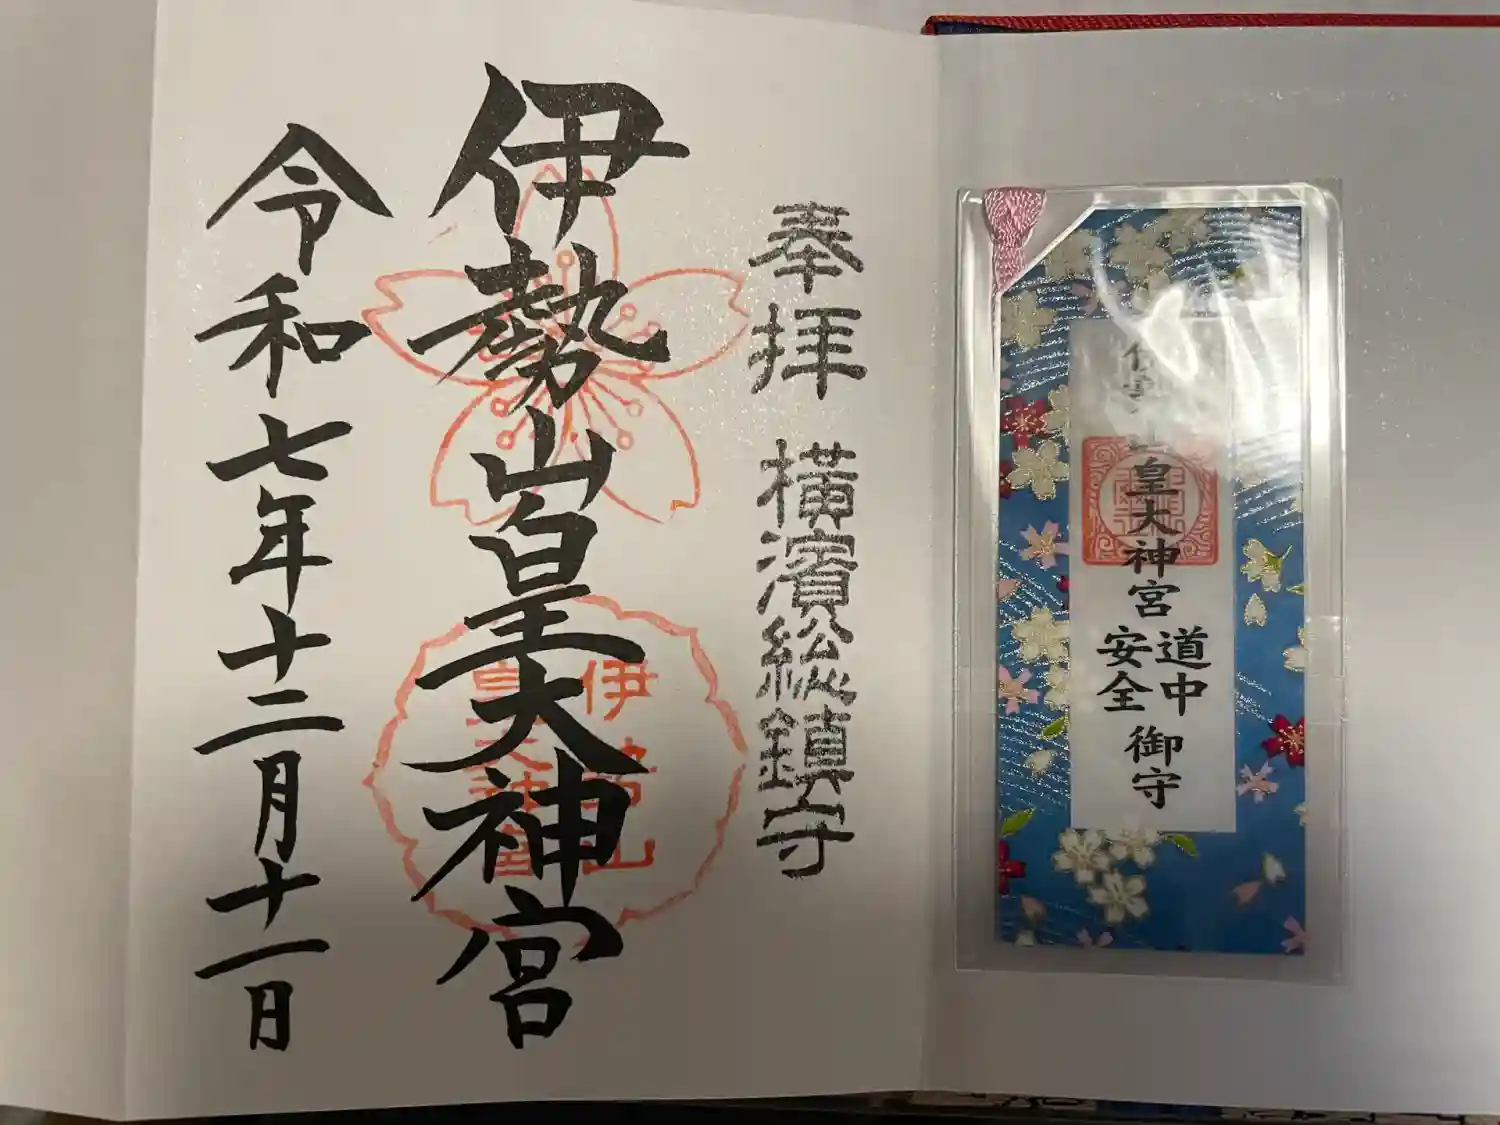 奉拝 横濱総鎮守
伊勢山皇大神宮
伊勢山
皇大神宮
令和七年十二月十一日
皇大神宮
道中
安全
御守